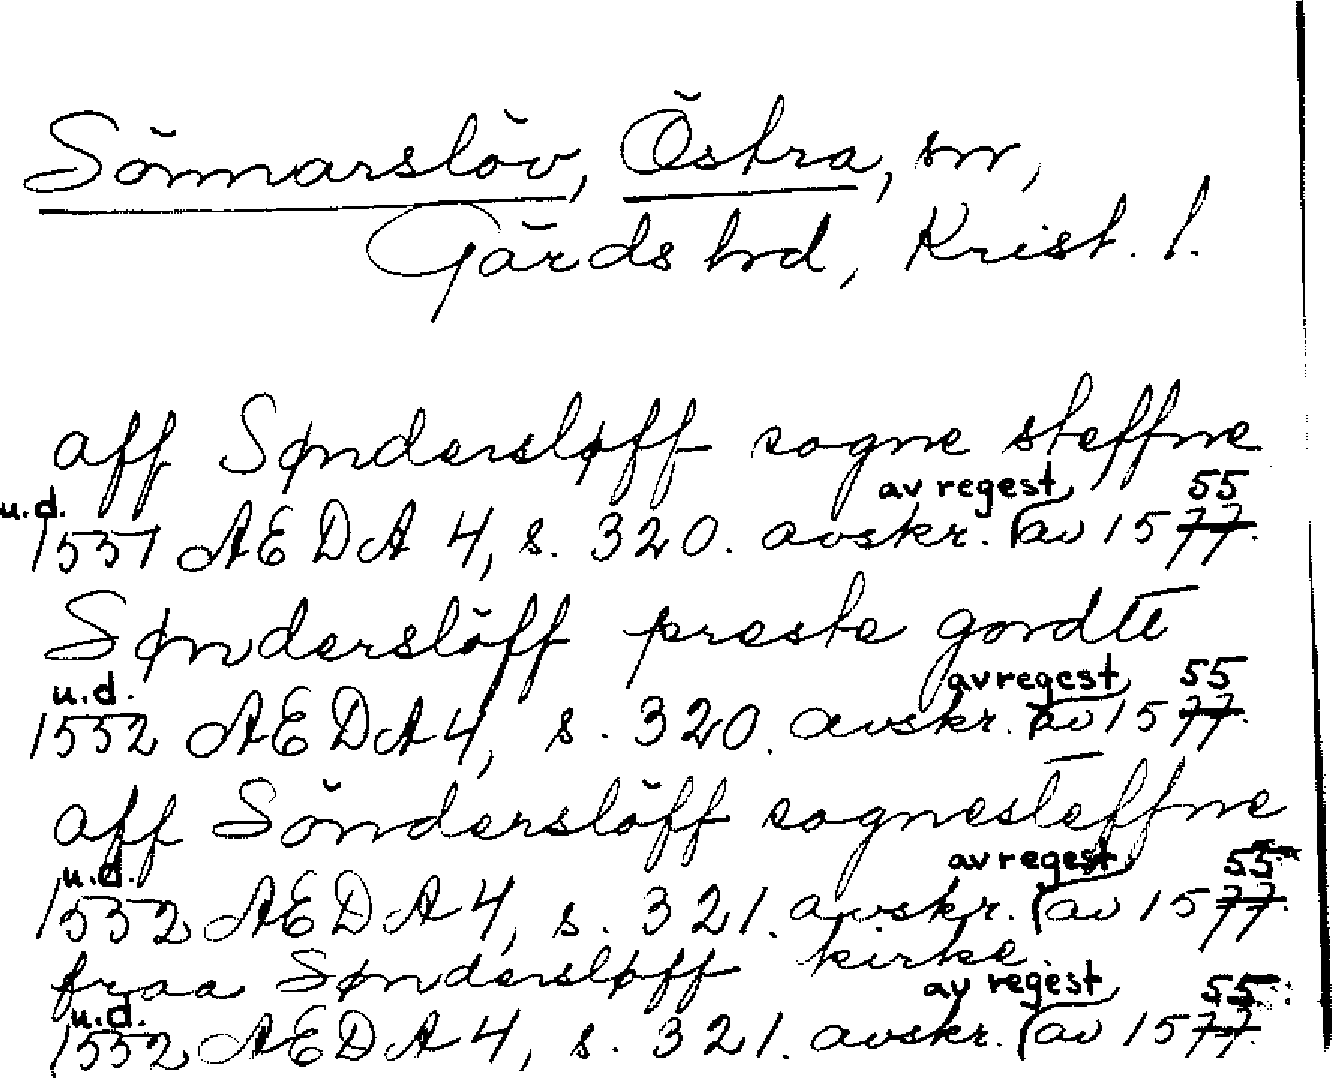 Sönnarslöv, Östra, sn,
Gärds hrd, Krist. l.
aff Søndersløff sogne steffne
av regest 55
u.d.
1551 AEDA 4, s. 320. avskr. av 1577.
Sønderslöff preste gordtt
u.d. av regest 55
1552 AEDA 4, s. 320. avskr. av 1577.
aff Sönderslöff sognesteffne
u.d. av regest 55
1552 AEDA 4, s. 321. avskr. av 1577.
fraa Søndersløff kirke.
u.d. av regest 55
1552 AEDA 4, s. 321. avskr. av 1577.